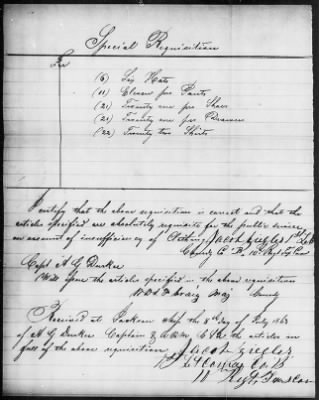 Special Requisition
For
(6) Six Hats
(11) Eleven pr Pants
(21) Twenty one pr Shoes
(21) Twenty one pr Drawers
(22) Twenty two Shirts
I certify that the above requisition is correct and that the
articles specified are absolutely requisite for the public service
on account of insufficiency of Clothing Jacob Ziegler
Comdg Co B, 10th Regt
Capt A G
Will issue the articles specified in the above requisition
Craig Maj Comdg
Received at Jackson the 8th day of July 1863
of A G Captain & the articles in
full of the above requisition
Jacob Ziegler
Lt Comdg Co B
Regt